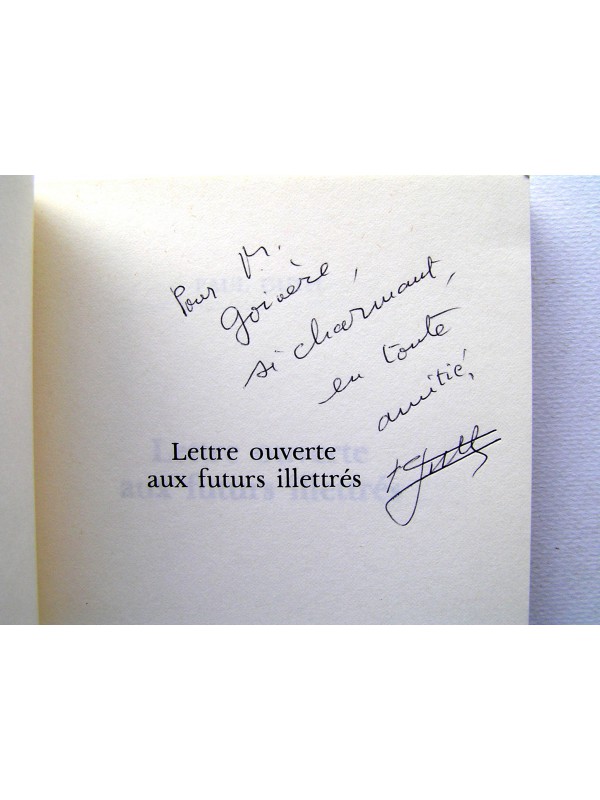 Pour M.
Gorvère,
si charmant,
en toute
amitié,
Lettre ouverte
aux futurs illettrés